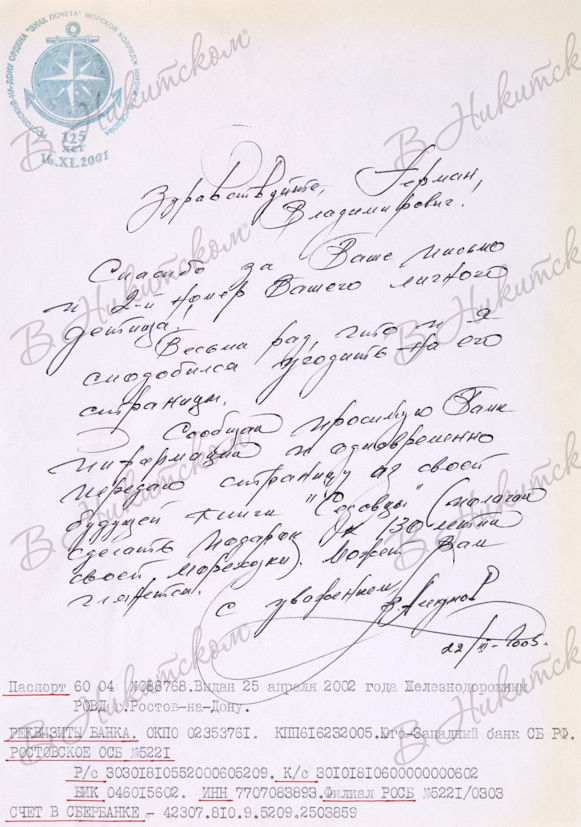 РОСТОВСКИЙ-НА-ДОНУ ОРДЕНА "ЗНАК ПОЧЕТА" МОРСКОЙ КОЛЛЕДЖ
125
лет
16.XI.2001
Здравствуйте, Герман
Владимирович.
Спасибо за Ваше письмо
и 2-й номер Вашего личного
детища.
Весьма рад, что и я
сподобился угодить на его
страницы.
Сообщаю просимую Вами
информацию и одновременно
передаю страницу из своей
будущей книги "Седовцы" (полагаю
сделать подарок к 130-летию
своей мореходки). Может Вам
глянется.
С уважением,
22/III-2005.
Паспорт 60 04 №088768.Выдан 25 апреля 2002 года Железнодорожным
РОВД г.Ростов-на-Дону.
РЕКВИЗИТЫ БАНКА. ОКПО 02353761. КПП616232005.Юго-Западный банк СБ РФ.
РОСТОВСКОЕ ОСБ №5221
Р/с 30301810552000605209. К/с 30101810600000000602
БИК 046015602. ИНН 7707083893.Филиал РОСБ №5221/0303
СЧЕТ В СБЕРБАНКЕ - 42307.810.9.5209.2503859
В. Никитском®